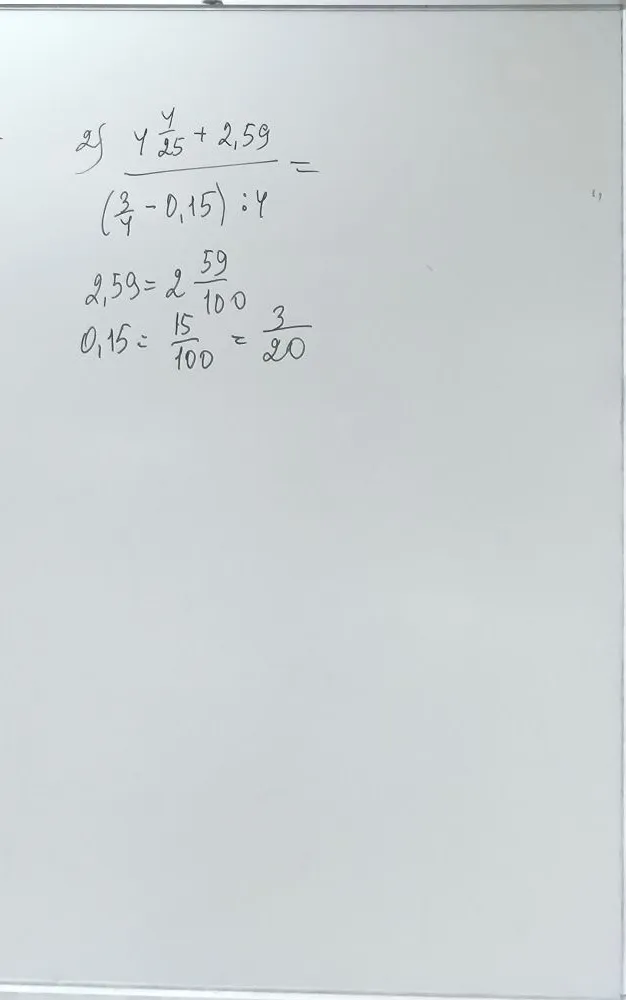 2) (4 4/25 + 2,59) / ((3/4 - 0,15) : 4) =
2,59 = 2 59/100
0,15 = 15/100 = 3/20